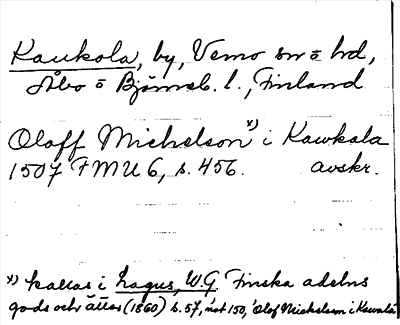 Kaukola, by, Vemo sn o hd,
Åbo o Björneb. l., Finland
Oloff Michelson x) i Kawkala
1507 FMU 6, s. 456. avskr.
x) kallas i Lagus, W.G. Finska adelns
gods och ätter (1860) s. 57, not 150, 'Olof Mickelsson i Kaukala'